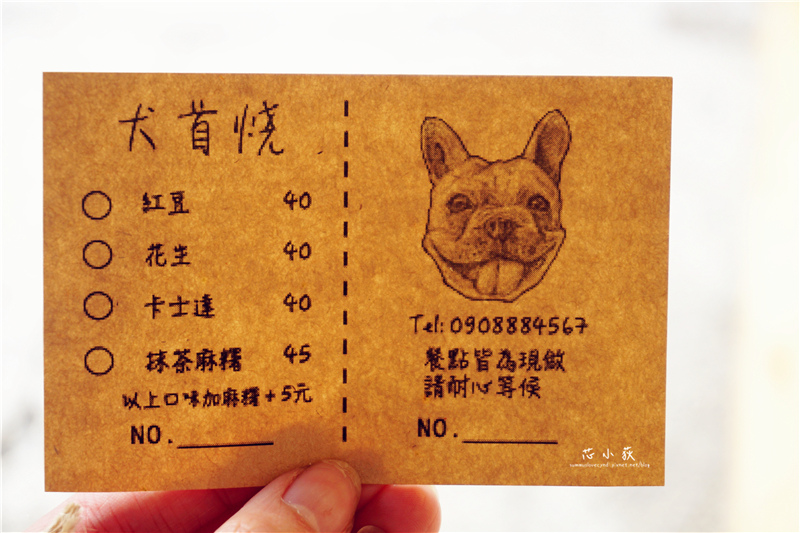 犬首燒
紅豆 40
花生 40
卡士達 40
抹茶麻糬 45
以上口味加麻糬+5元
NO.
Tel: 0908884567
餐點皆為現做
請耐心等候
NO.
芯小荻